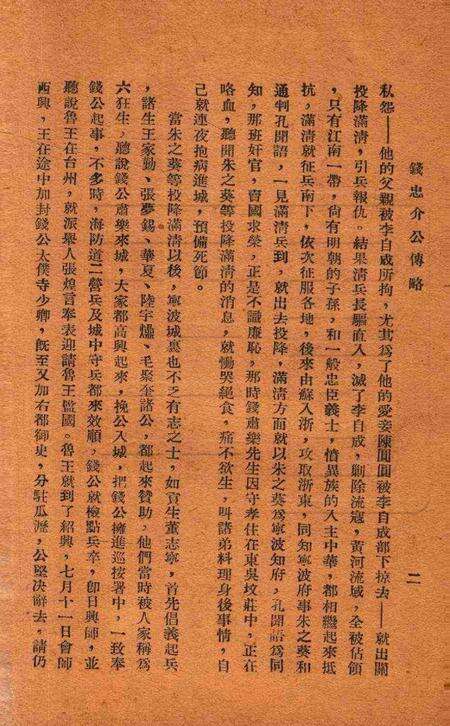 錢忠介公傳略
二
私怨——他的父親被李自成所拘，尤其爲了他的愛妾陳圓圓被李自成部下掠去——就出關
投降滿清，引兵報仇。結果清兵長驅直入，滅了李自成，剿除流寇，黃河流域，全被佔領
，只有江南一帶，尙有明朝的子孫，和一般忠臣義士，憤異族的入主中華，都相繼起來抵
抗，滿清就征兵南下，依次征服各地，後來由蘇入浙，攻取浙東，同知寧波府事朱之葵和
通判孔聞語，一見滿清兵到，就出去投降，滿清方面就以朱之葵爲寧波知府，孔聞語爲同
知，那班奸官，賣國求榮，正是不識廉恥，那時錢肅樂先生因守孝住在東吳坟莊中，正在
咯血，聽聞朱之葵等投降滿清的消息，就慟哭絕食，痛不欲生，叫諸弟料理身後事情，自
己就連夜抱病進城，預備死節。
當朱之葵等投降滿清以後，寧波城裏也不乏有志之士，如貢生董志寧，首先倡義起兵
，諸生王家勤、張夢錫、華夏、陸宇𤐤、毛聚奎諸公，都起來贊助，他們當時被人家稱爲
六狂生，聽說錢公肅樂來城，大家都高興起來，挽公入城，把錢公擁進巡按署中，一致奉
錢公起事，不多時，海防道二營兵及城中守兵都來效順，錢公就檢點兵卒，卽日興師，並
聽說魯王在台州，就派舉人張煌言奉表迎請魯王監國。魯王就到了紹興，七月十一日會師
西興，王在途中加封錢公太僕寺少卿，旣至又加右都御史，分駐瓜瀝，公堅決辭去，請仍